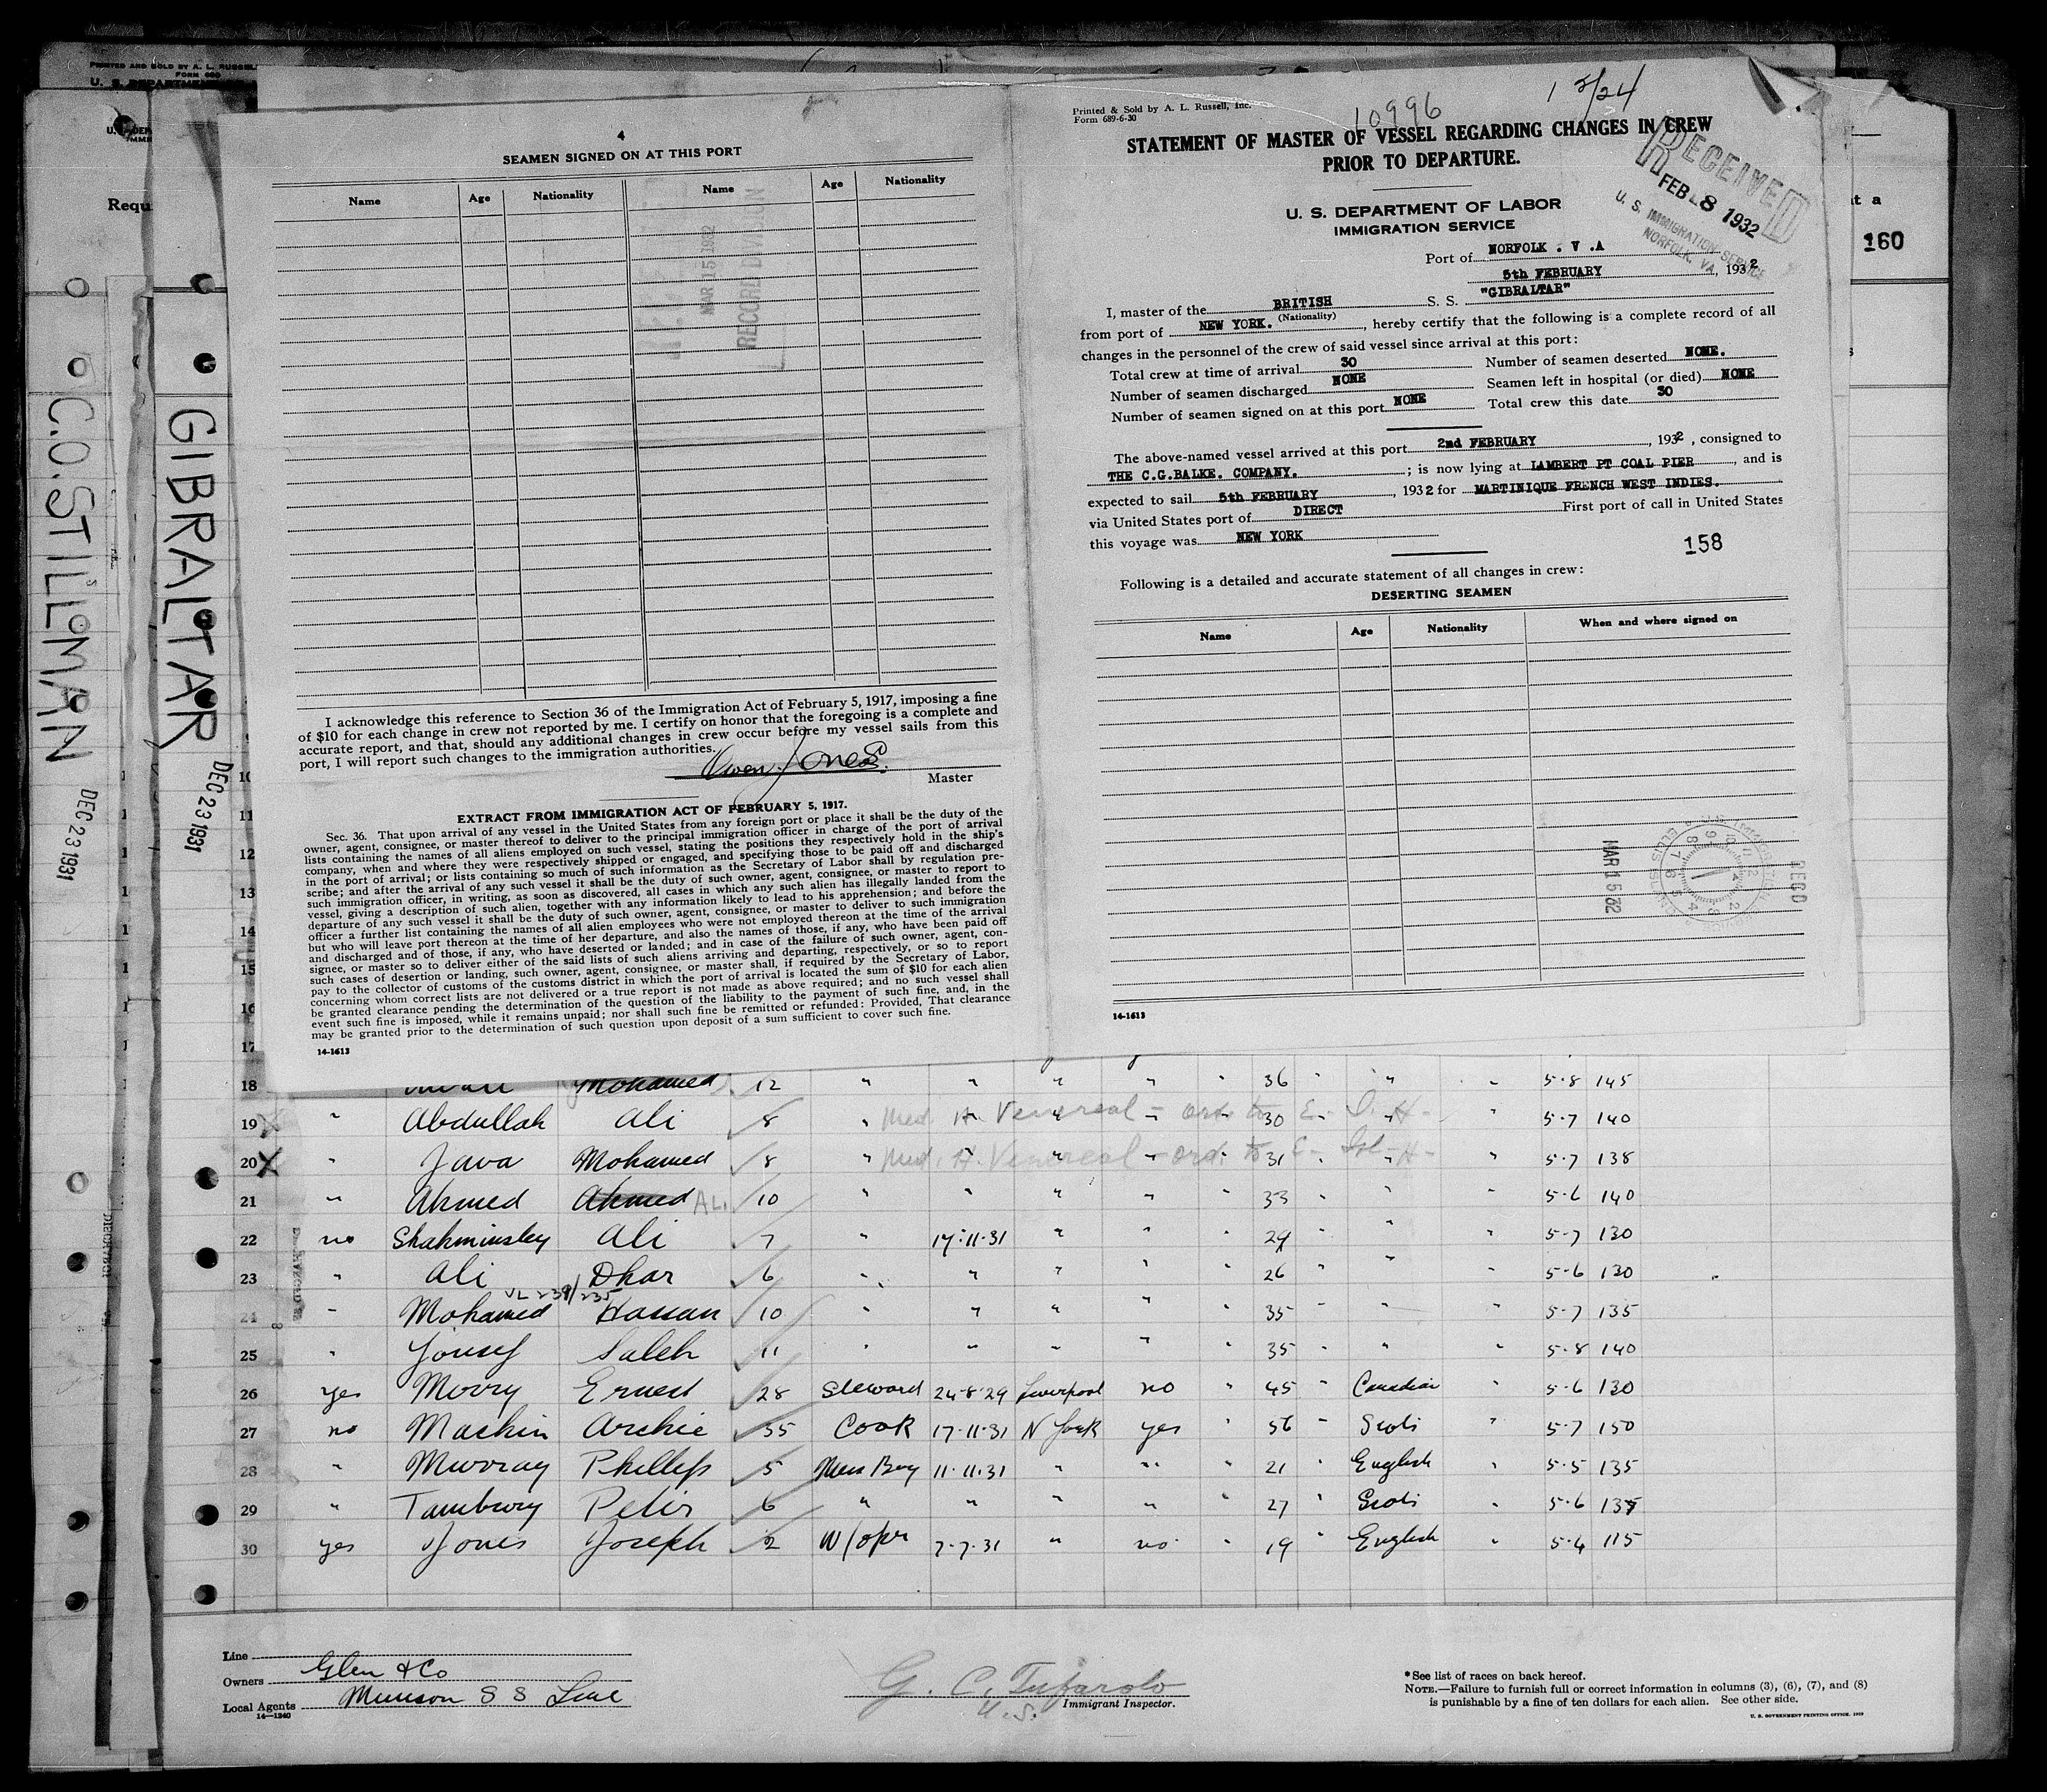 PRINTED AND SOLD BY A. L. RUSSEL
FORM 689
U. S. DEPARTMENT
Requ
at a
160
C.O. STILLMAN
DEC 23 1931
GIBRALTAR
DEC 23 1931
4
SEAMEN SIGNED ON AT THIS PORT
Name Age Nationality Name Age Nationality
MAR 15 1932
RECORD DIVISION
I acknowledge this reference to Section 36 of the Immigration Act of February 5, 1917, imposing a fine
of $10 for each change in crew not reported by me. I certify on honor that the foregoing is a complete and
accurate report, and that, should any additional changes in crew occur before my vessel sails from this
port, I will report such changes to the immigration authorities.
Owen Jones.
Master
EXTRACT FROM IMMIGRATION ACT OF FEBRUARY 5, 1917.
Sec. 36. That upon arrival of any vessel in the United States from any foreign port or place it shall be the duty of the
owner, agent, consignee, or master thereof to deliver to the principal immigration officer in charge of the port of arrival
lists containing the names of all aliens employed on such vessel, stating the positions they respectively hold in the ship's
company, when and where they were respectively shipped or engaged, and specifying those to be paid off and discharged
in the port of arrival; or lists containing so much of such information as the Secretary of Labor shall by regulation pre-
scribe; and after the arrival of any such vessel it shall be the duty of such owner, agent, consignee, or master to report to
such immigration officer, in writing, as soon as discovered, all cases in which any such alien has illegally landed from the
vessel, giving a description of such alien, together with any information likely to lead to his apprehension; and before the
departure of any such vessel it shall be the duty of such owner, agent, consignee, or master to deliver to such immigration
officer a further list containing the names of all alien employees who were not employed thereon at the time of the arrival
but who will leave port thereon at the time of her departure, and also the names of those, if any, who have been paid off
and discharged and of those, if any, who have deserted or landed; and in case of the failure of such owner, agent, con-
signee, or master so to deliver either of the said lists of such aliens arriving and departing, respectively, or so to report
such cases of desertion or landing, such owner, agent, consignee, or master shall, if required by the Secretary of Labor,
pay to the collector of customs of the customs district in which the port of arrival is located the sum of $10 for each alien
concerning whom correct lists are not delivered or a true report is not made as above required; and no such vessel shall
be granted clearance pending the determination of the question of the liability to the payment of such fine, and, in the
event such fine is imposed, while it remains unpaid; nor shall such fine be remitted or refunded: Provided, That clearance
may be granted prior to the determination of such question upon deposit of a sum sufficient to cover such fine.
14-1613
Printed & Sold by A. L. Russell, Inc.
Form 689-6-30
10996
1 2/24
STATEMENT OF MASTER OF VESSEL REGARDING CHANGES IN CREW
PRIOR TO DEPARTURE.
RECEIVED
FEB 8 1932
U. S. IMMIGRATION SERVICE
NORFOLK, VA.
U. S. DEPARTMENT OF LABOR
IMMIGRATION SERVICE
Port of NORFOLK . V .A
5th FEBRUARY, 1932
I, master of the BRITISH S. S. "GIBRALTAR"
(Nationality)
from port of NEW YORK., hereby certify that the following is a complete record of all
changes in the personnel of the crew of said vessel since arrival at this port:
Total crew at time of arrival 30 Number of seamen deserted NONE.
Number of seamen discharged NONE Seamen left in hospital (or died) NONE
Number of seamen signed on at this port NONE Total crew this date 30
The above-named vessel arrived at this port 2nd FEBRUARY, 1932, consigned to
THE C.G.BALKE. COMPANY.; is now lying at LAMBERT PT COAL PIER, and is
expected to sail 5th FEBRUARY, 1932 for MARTINIQUE FRENCH WEST INDIES.
via United States port of DIRECT First port of call in United States
this voyage was NEW YORK
158
Following is a detailed and accurate statement of all changes in crew:
DESERTING SEAMEN
Name Age Nationality When and where signed on
MAR 15 32
REC'D
14-1613
10
11
12
13
14
15
16
17
18 Mohamed 12 " " " " " 36 " " " 5-8 145
19 " Abdullah Ali 8 " " " " " 30 " " " 5-7 140
Med. H. Venereal - ord. to E. I. H-
20 X " Java Mohamed 8 " " " " " 31 " " " 5-7 138
Med. H. Venereal - ord. to E- Isl-H-
21 " Ahmed Ahmed ALI 10 " " " " " 33 " " " 5-6 140
22 no Shahminsley Ali 7 " 17-11-31 " " " 29 " " " 5-7 130
23 " Ali Dhar 6 " " " " " 26 " " " 5-6 130
VL 239/235
24 " Mohamed Hassan 10 " " " " " 35 " " " 5-7 135
25 " Yousef Saleh 11 " " " " " 35 " " " 5-8 140
26 yes Morry Ernest 28 Steward 24-8-29 Liverpool no " 45 " Canadian " 5-6 130
27 no Machin Archie 35 Cook 17-11-31 N York yes " 56 " Scots " 5-7 150
28 " Murray Phillip 5 Mess Boy 11-11-31 " " " 21 " English " 5-5 135
29 " Tambury Peter 6 " " " " " 27 " Scots " 5-6 135
30 yes Jones Joseph 2 W/opr 7-7-31 " no " 19 " English " 5-4 115
Line
Owners Glen & Co
Local Agents Munson S S Line
14-1240
G. C. Tufarolo
U.S.
Immigrant Inspector.
* See list of races on back hereof.
NOTE.—Failure to furnish full or correct information in columns (3), (6), (7), and (8)
is punishable by a fine of ten dollars for each alien. See other side.
U. S. GOVERNMENT PRINTING OFFICE: 1929